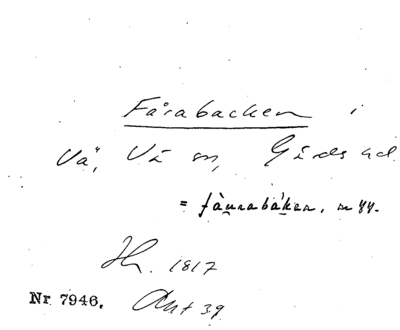 Fårabacken i
Vä, Vä sn, Gärds hd
= fàu̯rabák̯en, n yy.
Hr. 1817
Nr 7946. Ant 39